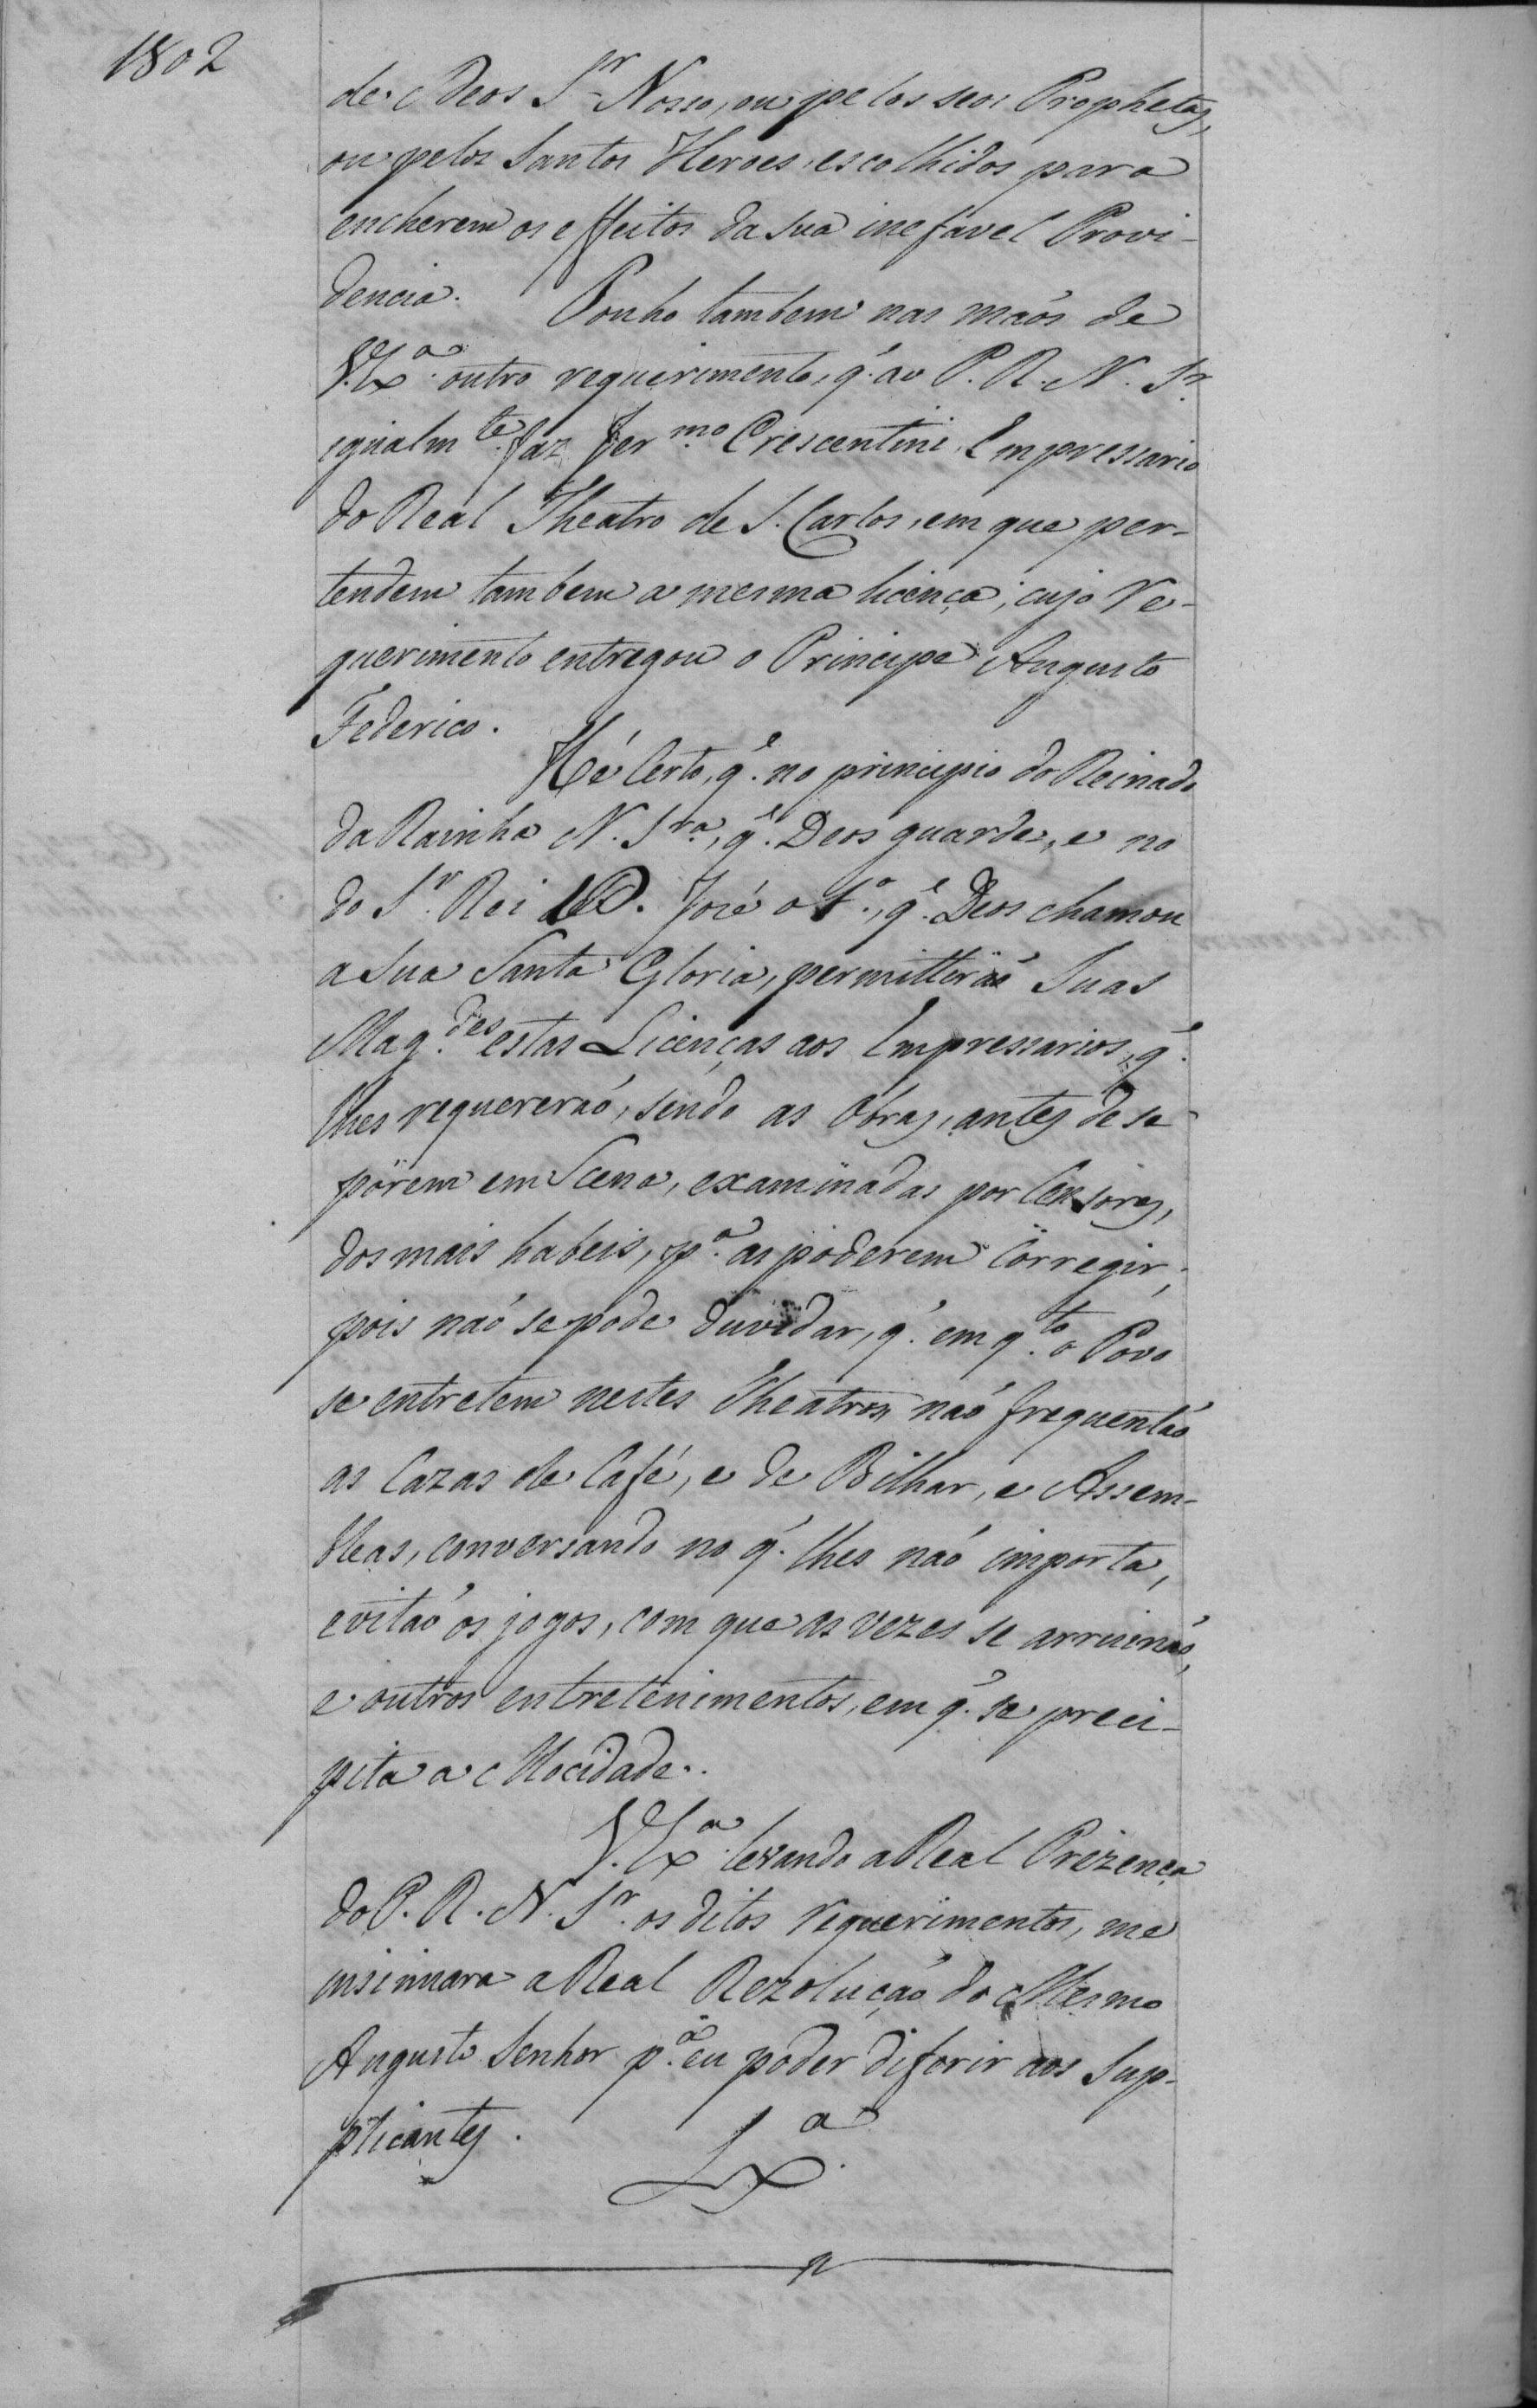 1802
de Deos Sr Nosso, ou pelos seos Prophetas,
ou pelos Santos Heroes, escolhidos para
encherem os effeitos da sua inefavel Provi-
dencia. Ponho tambem nas maõs de
V.Exa. outro requerimento, q̃. ao P. R. N. Sr.
igualmte. faz Jermo. Crescentini, Empressario
do Real Theatro de S. Carlos, em que per-
tendem tambem a mesma licença; cujo re-
querimento entregou o Principe Augusto
Federico.
Hé certo, q̃. no principio do Reinado
da Rainha N. Sra., q̃. Deos guarde, e no
do Sr. Rei D. José o 1o., q̃. Deos chamou
a sua Santa Gloria, permittiraõ Suas
Magdes. estas Licenças aos Empressarios, q̃.
lhes requereraõ, sendo as Obras, antes de se
pôrem em Scena, examinadas por Censores,
dos mais habeis, pa. as poderem corregir,
pois naõ se pode duvidar, q̃. em qto. o Povo
se entretem nestes Theatros, naõ frequentaõ
as Cazas de Café, e de Bilhar, e Assem-
bleas, conversando no q̃. lhes naõ importa,
evitaõ os jogos, com que as vezes se arruinaõ,
e outros entretenimentos, em q̃. se preci-
pita a Mocidade.
V.Exa. levando a Real Prezença
do P. R. N. Sr. os ditos requerimentos, me
insinuara a Real Rezoluçaõ do Mesmo
Augusto Senhor pa. eu poder diferir aos Sup-
plicantes. Lxa.